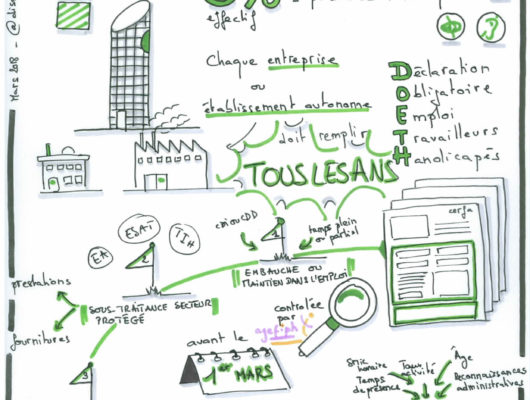 effectif
Chaque entreprise
ou
établissement autonome
doit remplir
TOUS LES ANS
Déclaration
Obligatoire
Emploi
Travailleurs
Handicapés
cerfa
Mars 2018 -
EA
ESAT
TIH
CDI ou CDD
temps plein
ou partiel
1
2
EMBAUCHE OU
MAINTIEN DANS L'EMPLOI
prestations
fournitures
SOUS-TRAITANCE SECTEUR
PROTÉGÉ
3
contrôlée
par
agefiph
avant le
1er MARS
SMIC
horaire
Temps
de présence
Taux
activité
Âge
Reconnaissances
administratives